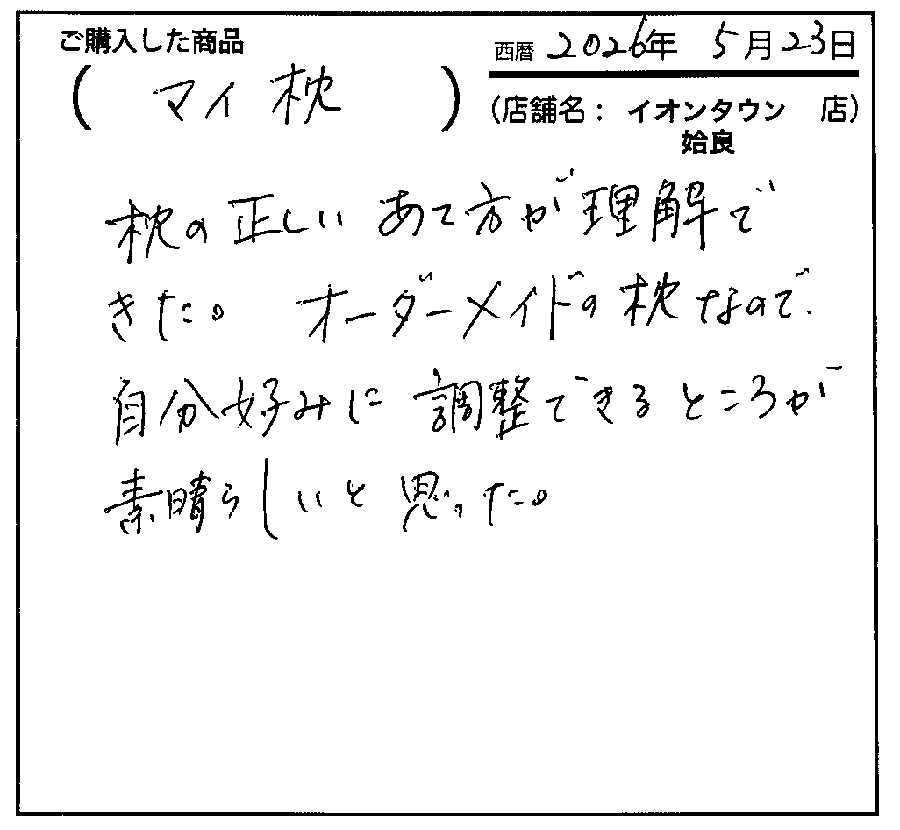 ご購入した商品
西暦 2026年 5月23日
( マイ枕 )
(店舗名: イオンタウン 店)
姶良
枕の正しい あて方が理解で
きた。 オーダーメイドの枕なので、
自分好みに調整できるところが
素晴らしいと思った。